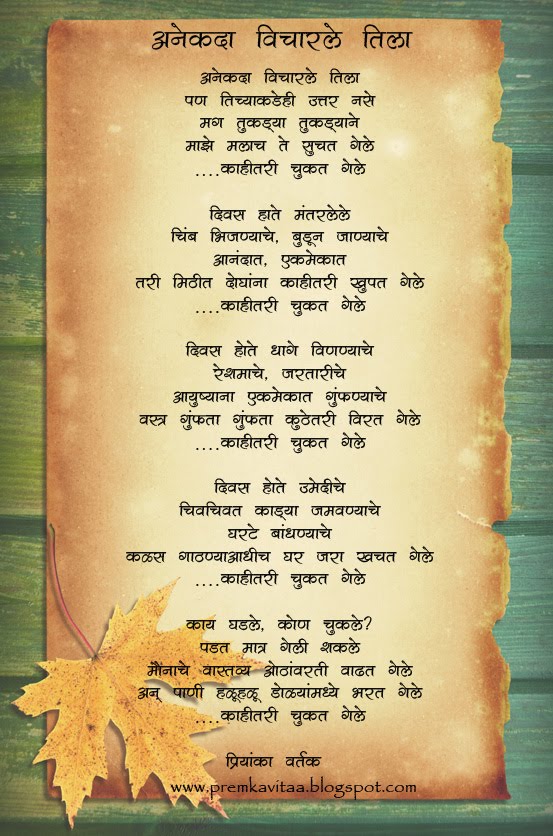 अनेकदा विचारले तिला
अनेकदा विचारले तिला
पण तिच्याकडेही उत्तर नसे
मग तुकड्या तुकड्याने
माझे मलाच ते सुचत गेले
....काहीतरी चुकत गेले
दिवस हाते मंतरलेले
चिंब भिजण्याचे, बुडून जाण्याचे
आनंदात, एकमेकात
तरी मिठीत दोघांना काहीतरी खुपत गेले
....काहीतरी चुकत गेले
दिवस होते धागे विणण्याचे
रेशमाचे, जरतारीचे
आयुष्याना एकमेकात गुंफण्याचे
वस्त्र गुंफता गुंफता कुठेतरी विरत गेले
....काहीतरी चुकत गेले
दिवस होते उमेदीचे
चिवचिवत काड्या जमवण्याचे
घरटे बांधण्याचे
कळस गाठण्याआधीच घर जरा खचत गेले
....काहीतरी चुकत गेले
काय घडले, कोण चुकले?
पडत मात्र गेली शकले
मौनाचे वास्तव्य ओठांवरती वाढत गेले
अन् पाणी हळूहळू डोळ्यांमध्ये भरत गेले
....काहीतरी चुकत गेले
प्रियांका वर्तक
www.premkavitaa.blogspot.com